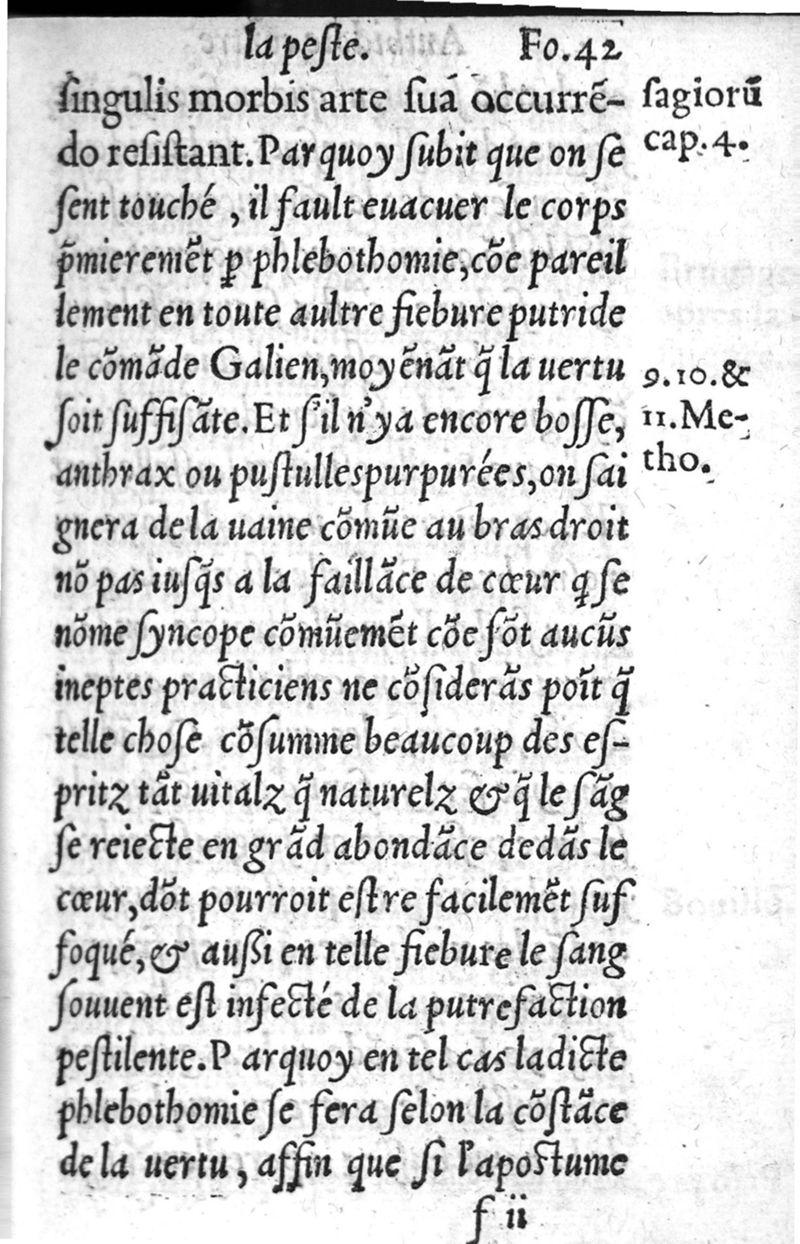 la peſte. Fo.42
ſingulis morbis arte ſuā occurrē-
do reſiſtant. Parquoy ſubit que on ſe
ſent touché , il fault euacuer le corps
p̄mieremēt ꝑ phlebothomie, cōe pareil
lement en toute aultre fiebure putride
le cōmāde Galien, moyēnāt q̄ la uertu
ſoit ſuffiſāte. Et ſ'il n'ya encore boſſe,
anthrax ou puſtulles purpurées, on ſai
gnera de la uaine cōmūe au bras droit
nō pas iuſq̄s a la faillāce de cœur ꝗ ſe
nōme ſyncope cōmūemēt cōe ſōt aucūs
ineptes practiciens ne cōſiderās poīt q̄
telle choſe cōſumme beaucoup des eſ-
pritz tāt uitalz q̄ naturelz & q̄ le ſāg
ſe reiecte en grād abondāce dedās le
cœur, dōt pourroit eſtre facilemēt ſuf
foqué, & auſſi en telle fiebure le ſang
ſouuent eſt infecté de la putrefaction
peſtilente. Parquoy en tel cas ladicte
phlebothomie ſe fera ſelon la cōſtāce
de la uertu, affin que ſi l'apoſtume
f ii
ſagiorū
cap.4.
9.10.&
11.Me-
tho.